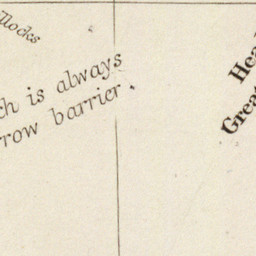 illocks
ch is always
rrow barrier.
Hea
Great